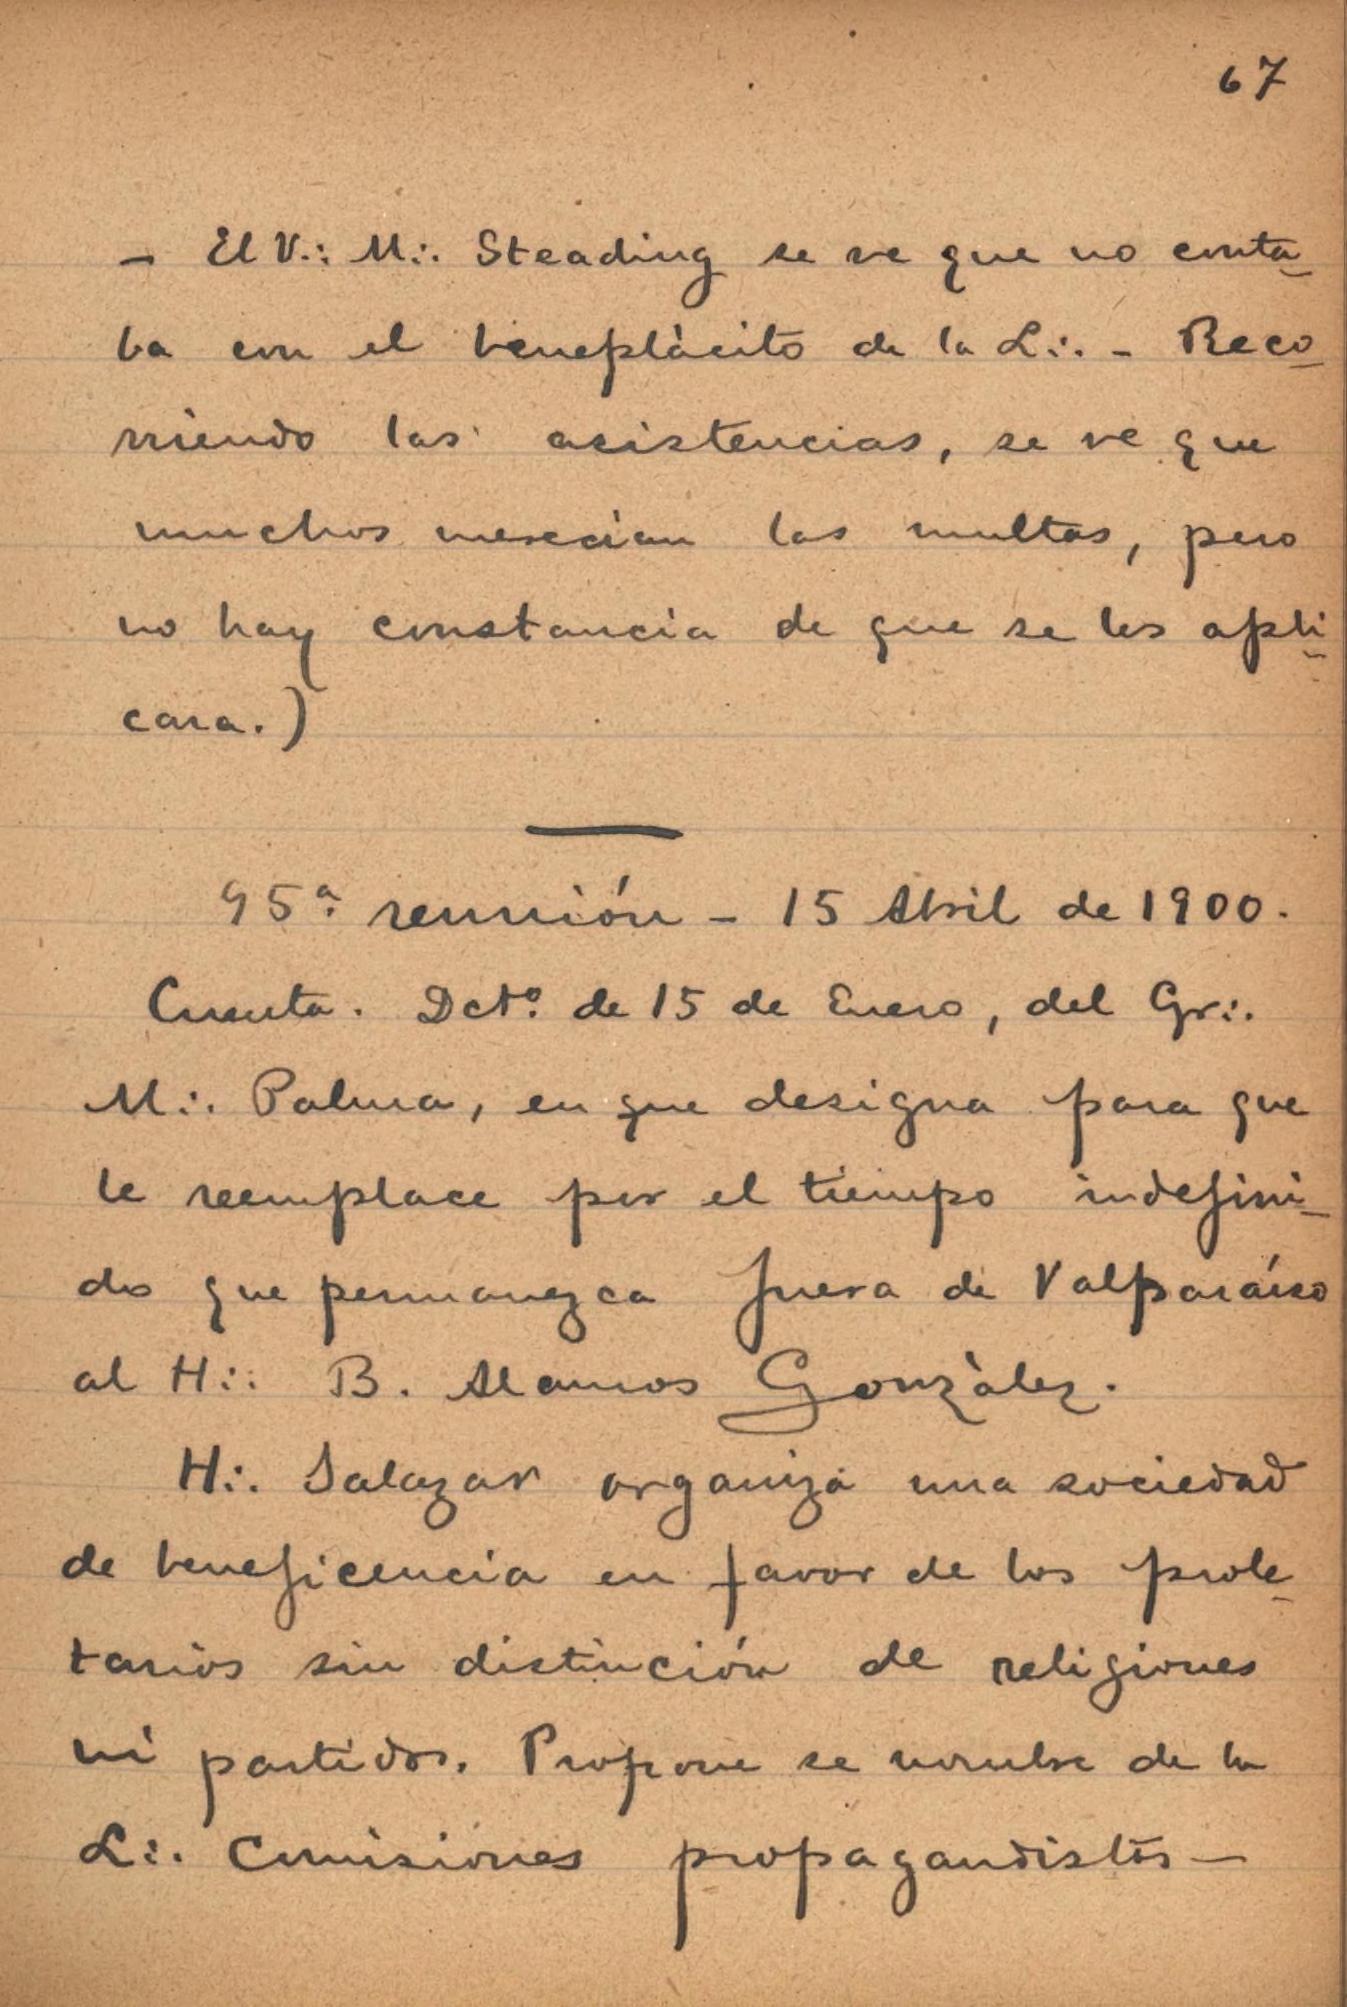 67
- El V∴ M∴ Steading se ve que no conta-
ba con el beneplàcito de la L∴ - Reco-
rriendo las asistencias, se ve que
muchos merecian las multas, pero
no hay constancia de que se les apli-
cara.)
95ª reunión - 15 Abril de 1900.
Cuenta. Dctº de 15 de Enero, del Gr∴
M∴ Palma, en que designa para que
le reemplace por el tiempo indefini-
do que permanezca fuera de Valparaíso
al H∴ B. Alamos Gonzàlez.
H∴ Salazar organiza una sociedad
de beneficencia en favor de los prole-
tarios sin distinción de religiones
ni partidos. Propone se nombre de la
L∴ Comisiones propagandistas -